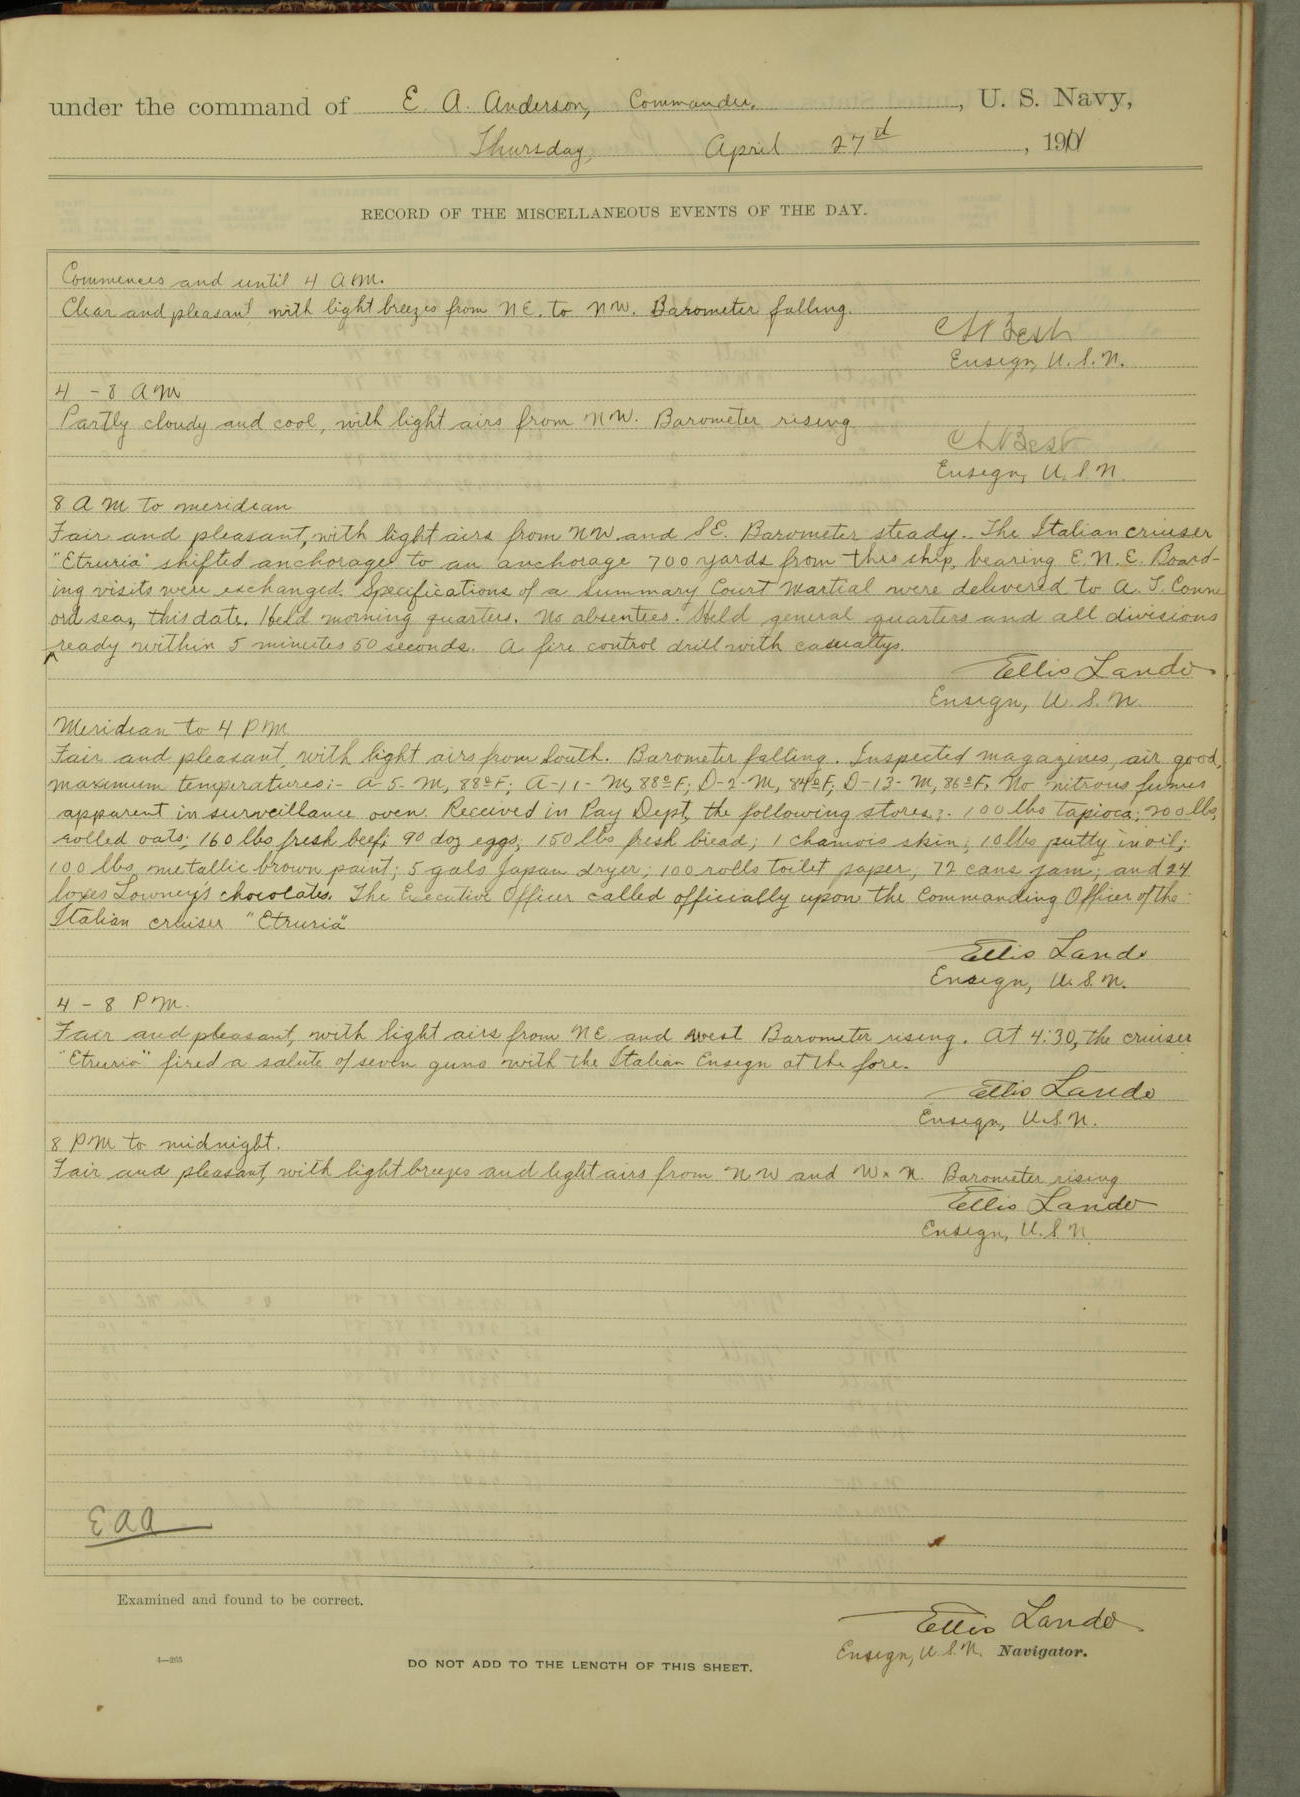 under the command of E. A. Anderson, Commander, U. S. Navy,
Thursday, April 27th, 1911
RECORD OF THE MISCELLANEOUS EVENTS OF THE DAY.
Commences and until 4 A.M.
Clear and pleasant with light breezes from N.E. to N.W. Barometer falling.
Ensign, U.S.N.
4 - 8 A M
Partly cloudy and cool, with light airs from N.W. Barometer rising
Ensign, U.S.N.
8 A M to meridian
Fair and pleasant, with light airs from NW and SE. Barometer steady. The Italian cruiser
"Etruria" shifted anchorage to an anchorage 700 yards from this ship, bearing E.N.E. Board-
ing visits were exchanged. Specifications of a Summary Court Martial were delivered to A. T.
ord sea, this date. Held morning quarters. No absentees. Held general quarters and all divisions
ready within 5 minutes 50 seconds. A fire control drill with casualtys.
Ellis Lando
Ensign, U.S.N.
Meridian to 4 P M
Fair and pleasant, with light airs from South. Barometer falling. Inspected magazines, air good,
maximum temperatures:- A-5-M, 88°F; A-11-M, 88°F; D-2-M, 84°F; D-13-M, 86°F. No nitrous fumes
apparent in surveillance oven. Received in Pay Dept, the following stores:- 100 lbs tapioca; 200 lbs,
rolled oats; 160 lbs fresh beef; 90 doz eggs; 150 lbs fresh bread; 1 chamois skin; 10 lbs putty in oil;
100 lbs metallic brown paint; 5 gals Japan dryer; 100 rolls toilet paper; 72 cans jam; and 24
boxes Lowney's chocolates. The Executive Officer called officially upon the Commanding Officer of the
Italian cruiser "Etruria"
Ellis Lando
Ensign, U.S.N.
4 - 8 P M.
Fair and pleasant, with light airs from NE and west Barometer rising. At 4:30, the cruiser
"Etruria" fired a salute of seven guns with the Italian Ensign at the fore.
Ellis Lando
Ensign, U.S.N.
8 PM to midnight.
Fair and pleasant, with light breezes and light airs from NW and W x N. Barometer rising
Ellis Lando
Ensign, U.S.N
E A A
Examined and found to be correct.
Ellis Lando
Ensign, U.S.N. Navigator.
4—265
DO NOT ADD TO THE LENGTH OF THIS SHEET.